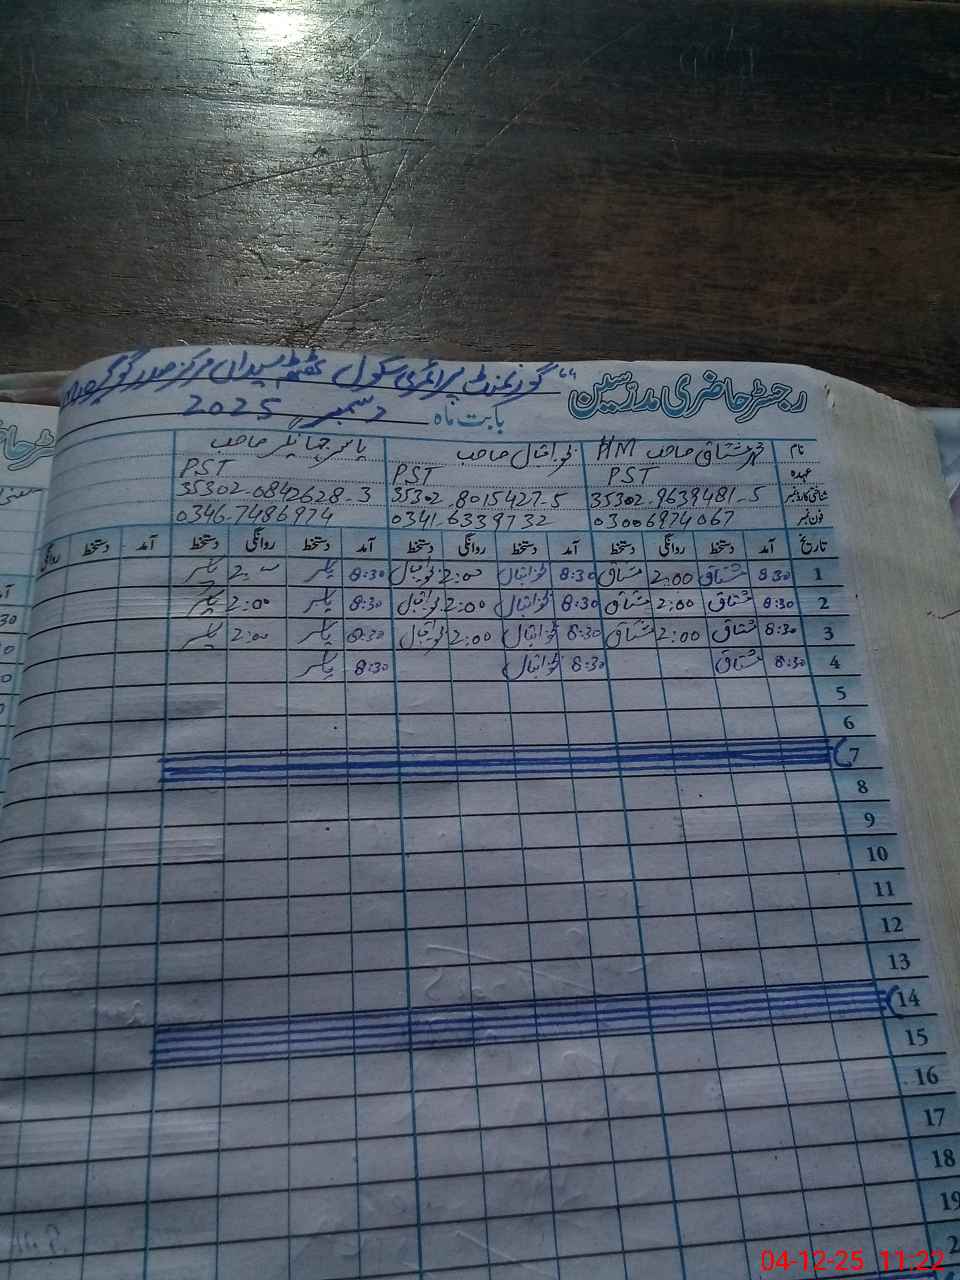 رجسٹر حاضری مدرسین
"گورنمنٹ پرائمری سکول سیداں مرکز صدر گوگیرہ
بابت ماہ دسمبر 2025
نام محمد مشتاق صاحب HM اقبال صاحب یاسر جہانگیر صاحب
عہدہ PST PST PST
شناختی کارڈ نمبر 35302-9639481-5 35302-8015427-5 35302-0842628-3
فون نمبر 03006974067 0341-6339732 0346-7486974
تاریخ آمد دستخط روانگی دستخط آمد دستخط روانگی دستخط آمد دستخط روانگی دستخط آمد دستخط روانگی
1 8:30 مشتاق 2:00 مشتاق 8:30 اقبال 2:00 اقبال 8:30 یاسر 2:00 یاسر
2 8:30 مشتاق 2:00 مشتاق 8:30 اقبال 2:00 اقبال 8:30 یاسر 2:00 یاسر
3 8:30 مشتاق 2:00 مشتاق 8:30 اقبال 2:00 اقبال 8:30 یاسر 2:00 یاسر
4 8:30 مشتاق 8:30 اقبال 8:30 یاسر
5
6
7
8
9
10
11
12
13
14
15
16
17
18
19
04-12-25 11:22